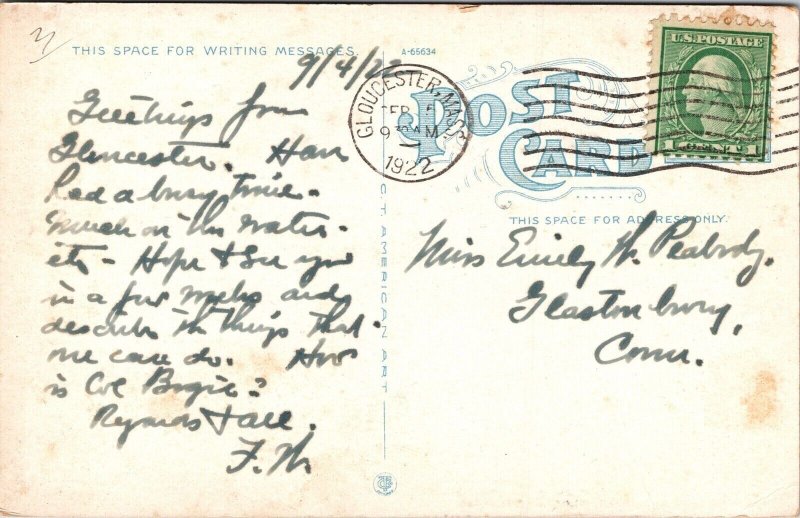 THIS SPACE FOR WRITING MESSAGES.
A-65634
9/4/22
Greetings from
Gloucester. Have
had a busy time -
much on the water -
etc - Hope to see you
in a few weeks and
describe the things that
one can do. How
is Col Bogie?
Regards to all.
F.W.
GLOUCESTER, MASS
SEP 5
9 30 AM
1922
POST CARD
U.S. POSTAGE
1 CENT 1
THIS SPACE FOR ADDRESS ONLY.
Miss Emily W. Peabody.
Glastonbury,
Conn.
CT AMERICAN ART